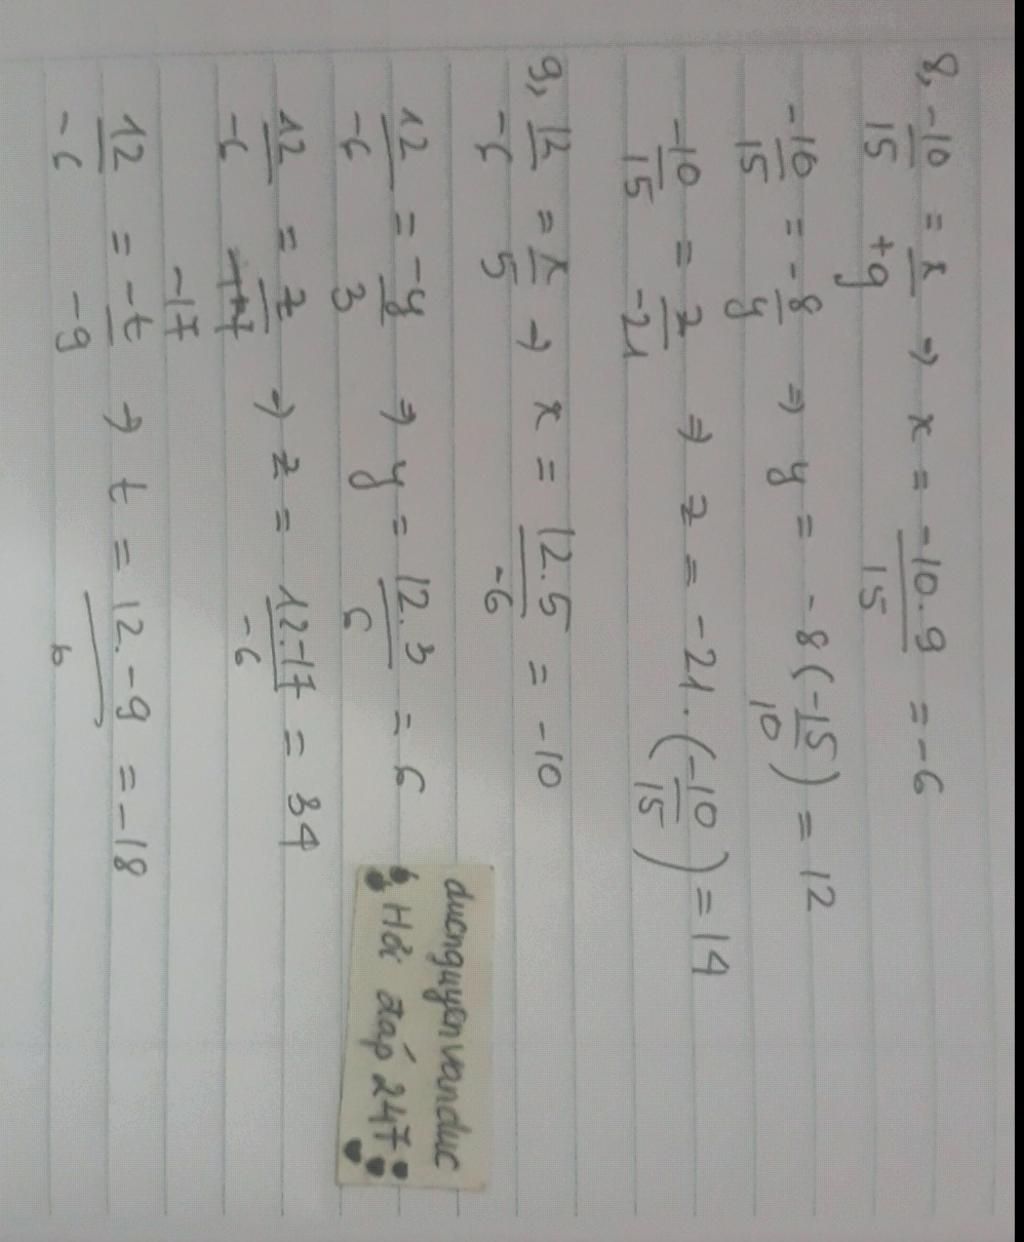 8, -10/15 = x/+9 => x = -10.9/15 = -6
-10/15 = -8/y => y = -8(-15/10) = 12
-10/15 = z/-21 => z = -21.(-10/15) = 14
9, 12/-6 = x/5 => x = 12.5/-6 = -10
12/-6 = -y/3 => y = 12.3/6 = 6
12/-6 = z/-17 => z = 12.-17/-6 = 34
12/-6 = -t/-9 => t = 12.-9/6 = -18
ducnguyenvanduc
Hỏi đáp 247